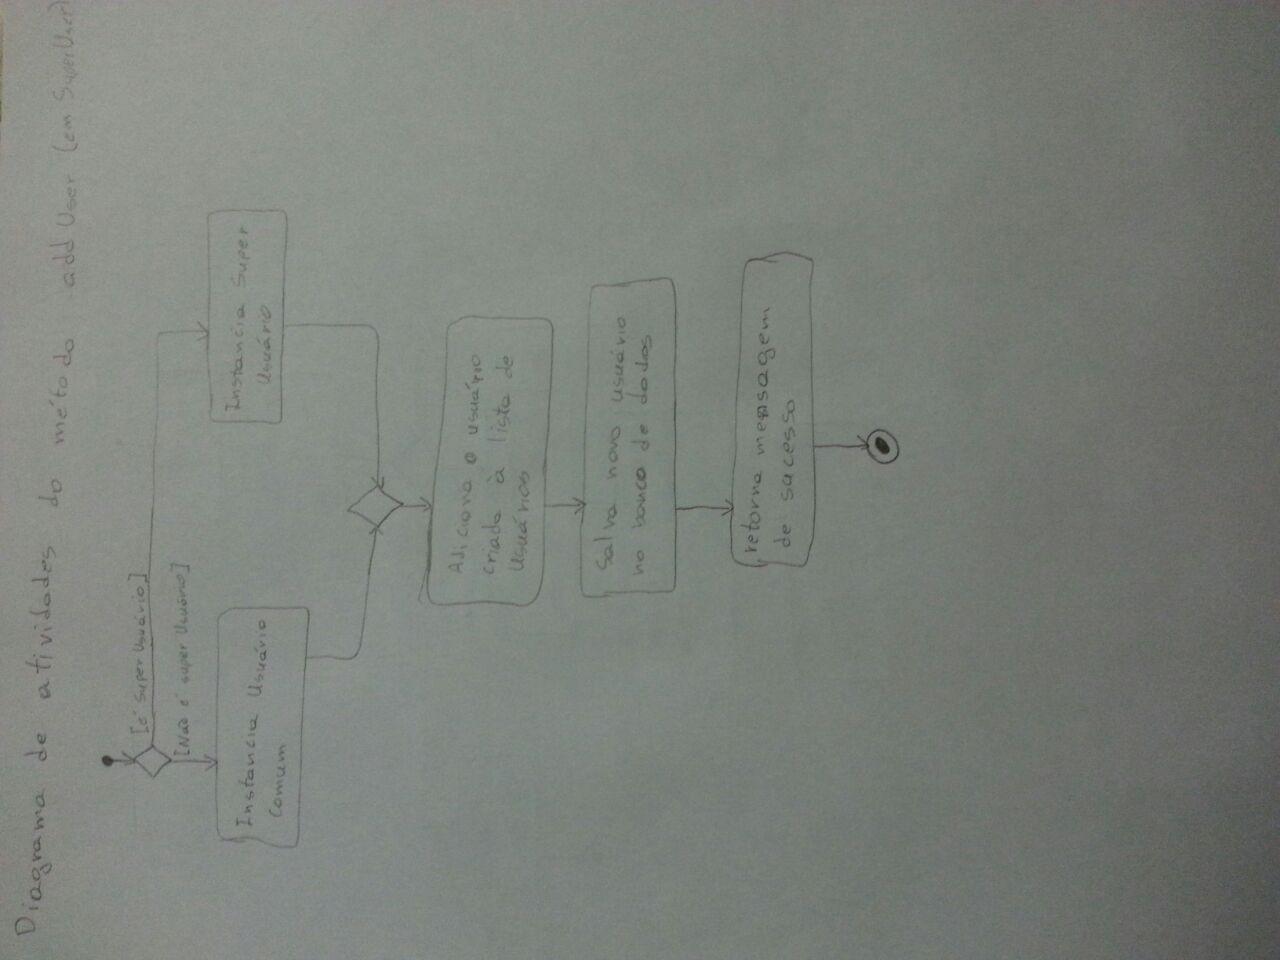 Diagrama de atividades do método addUser (em SuperUser)
[é super Usuário]
[Não é super Usuário]
Instancia Super
Usuário
Instancia Usuário
Comum
Adiciona o usuário
criado à lista de
Usuários
Salva novo usuário
no banco de dados
retorna mensagem
de sucesso